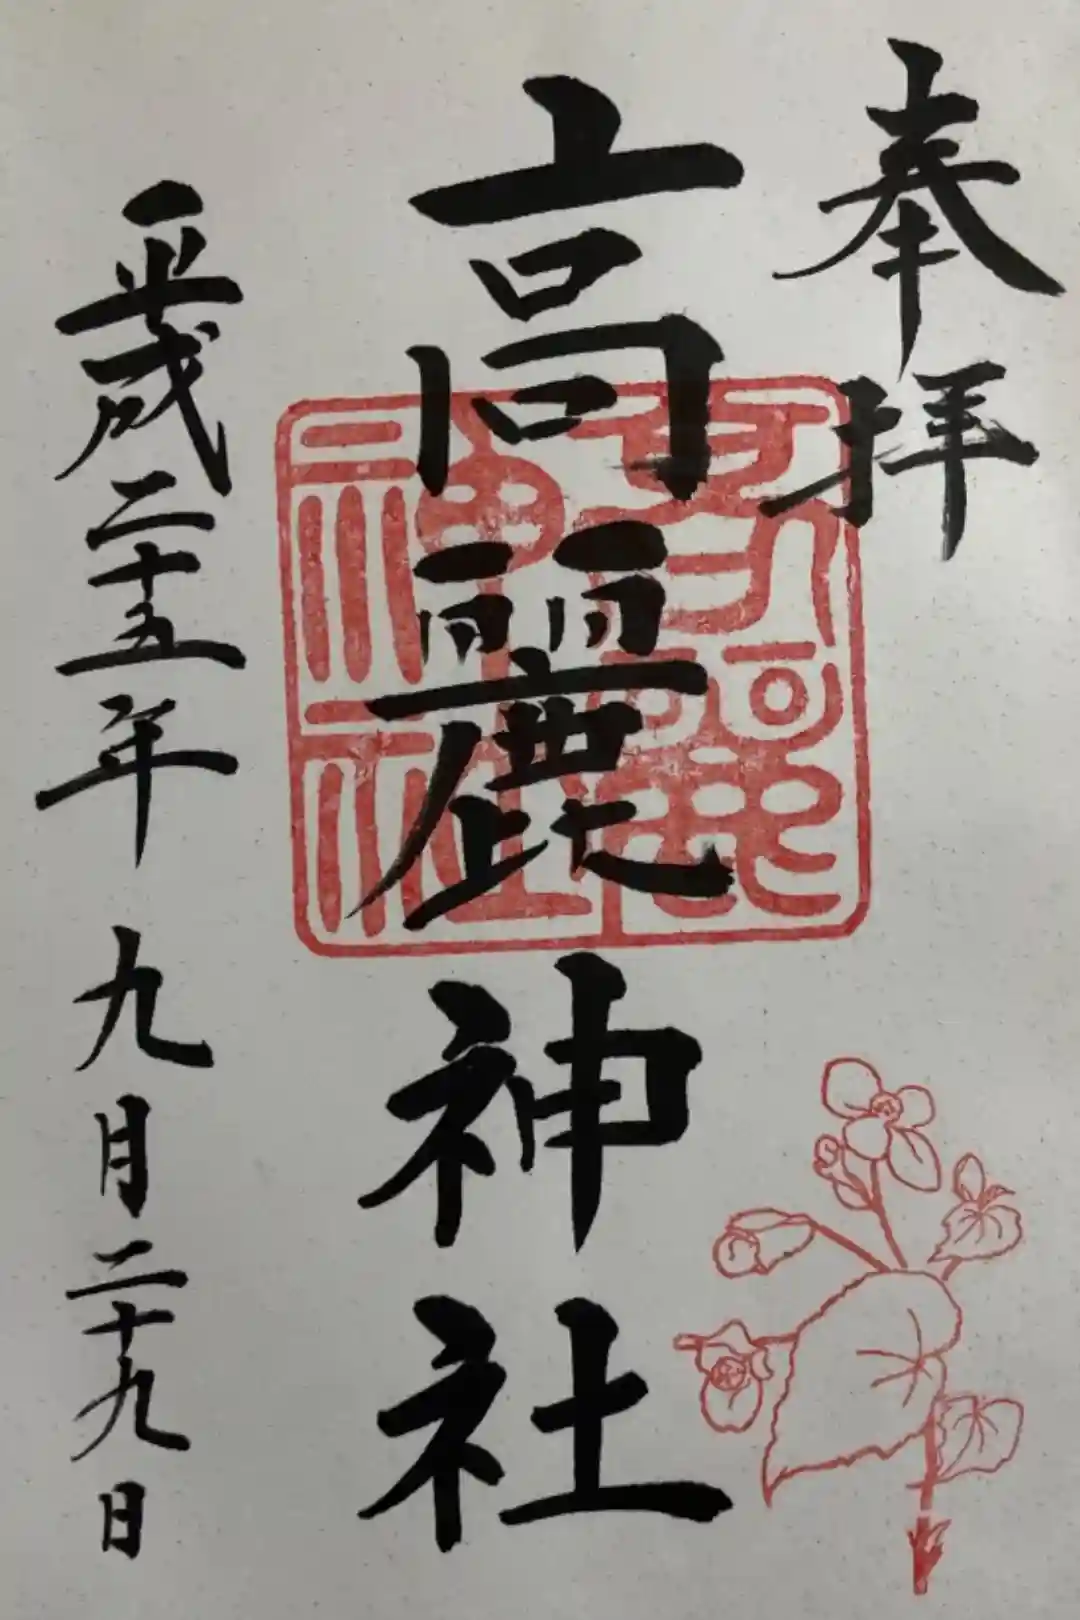 奉拝
高麗神社
平成二十五年九月二十九日
高麗神社